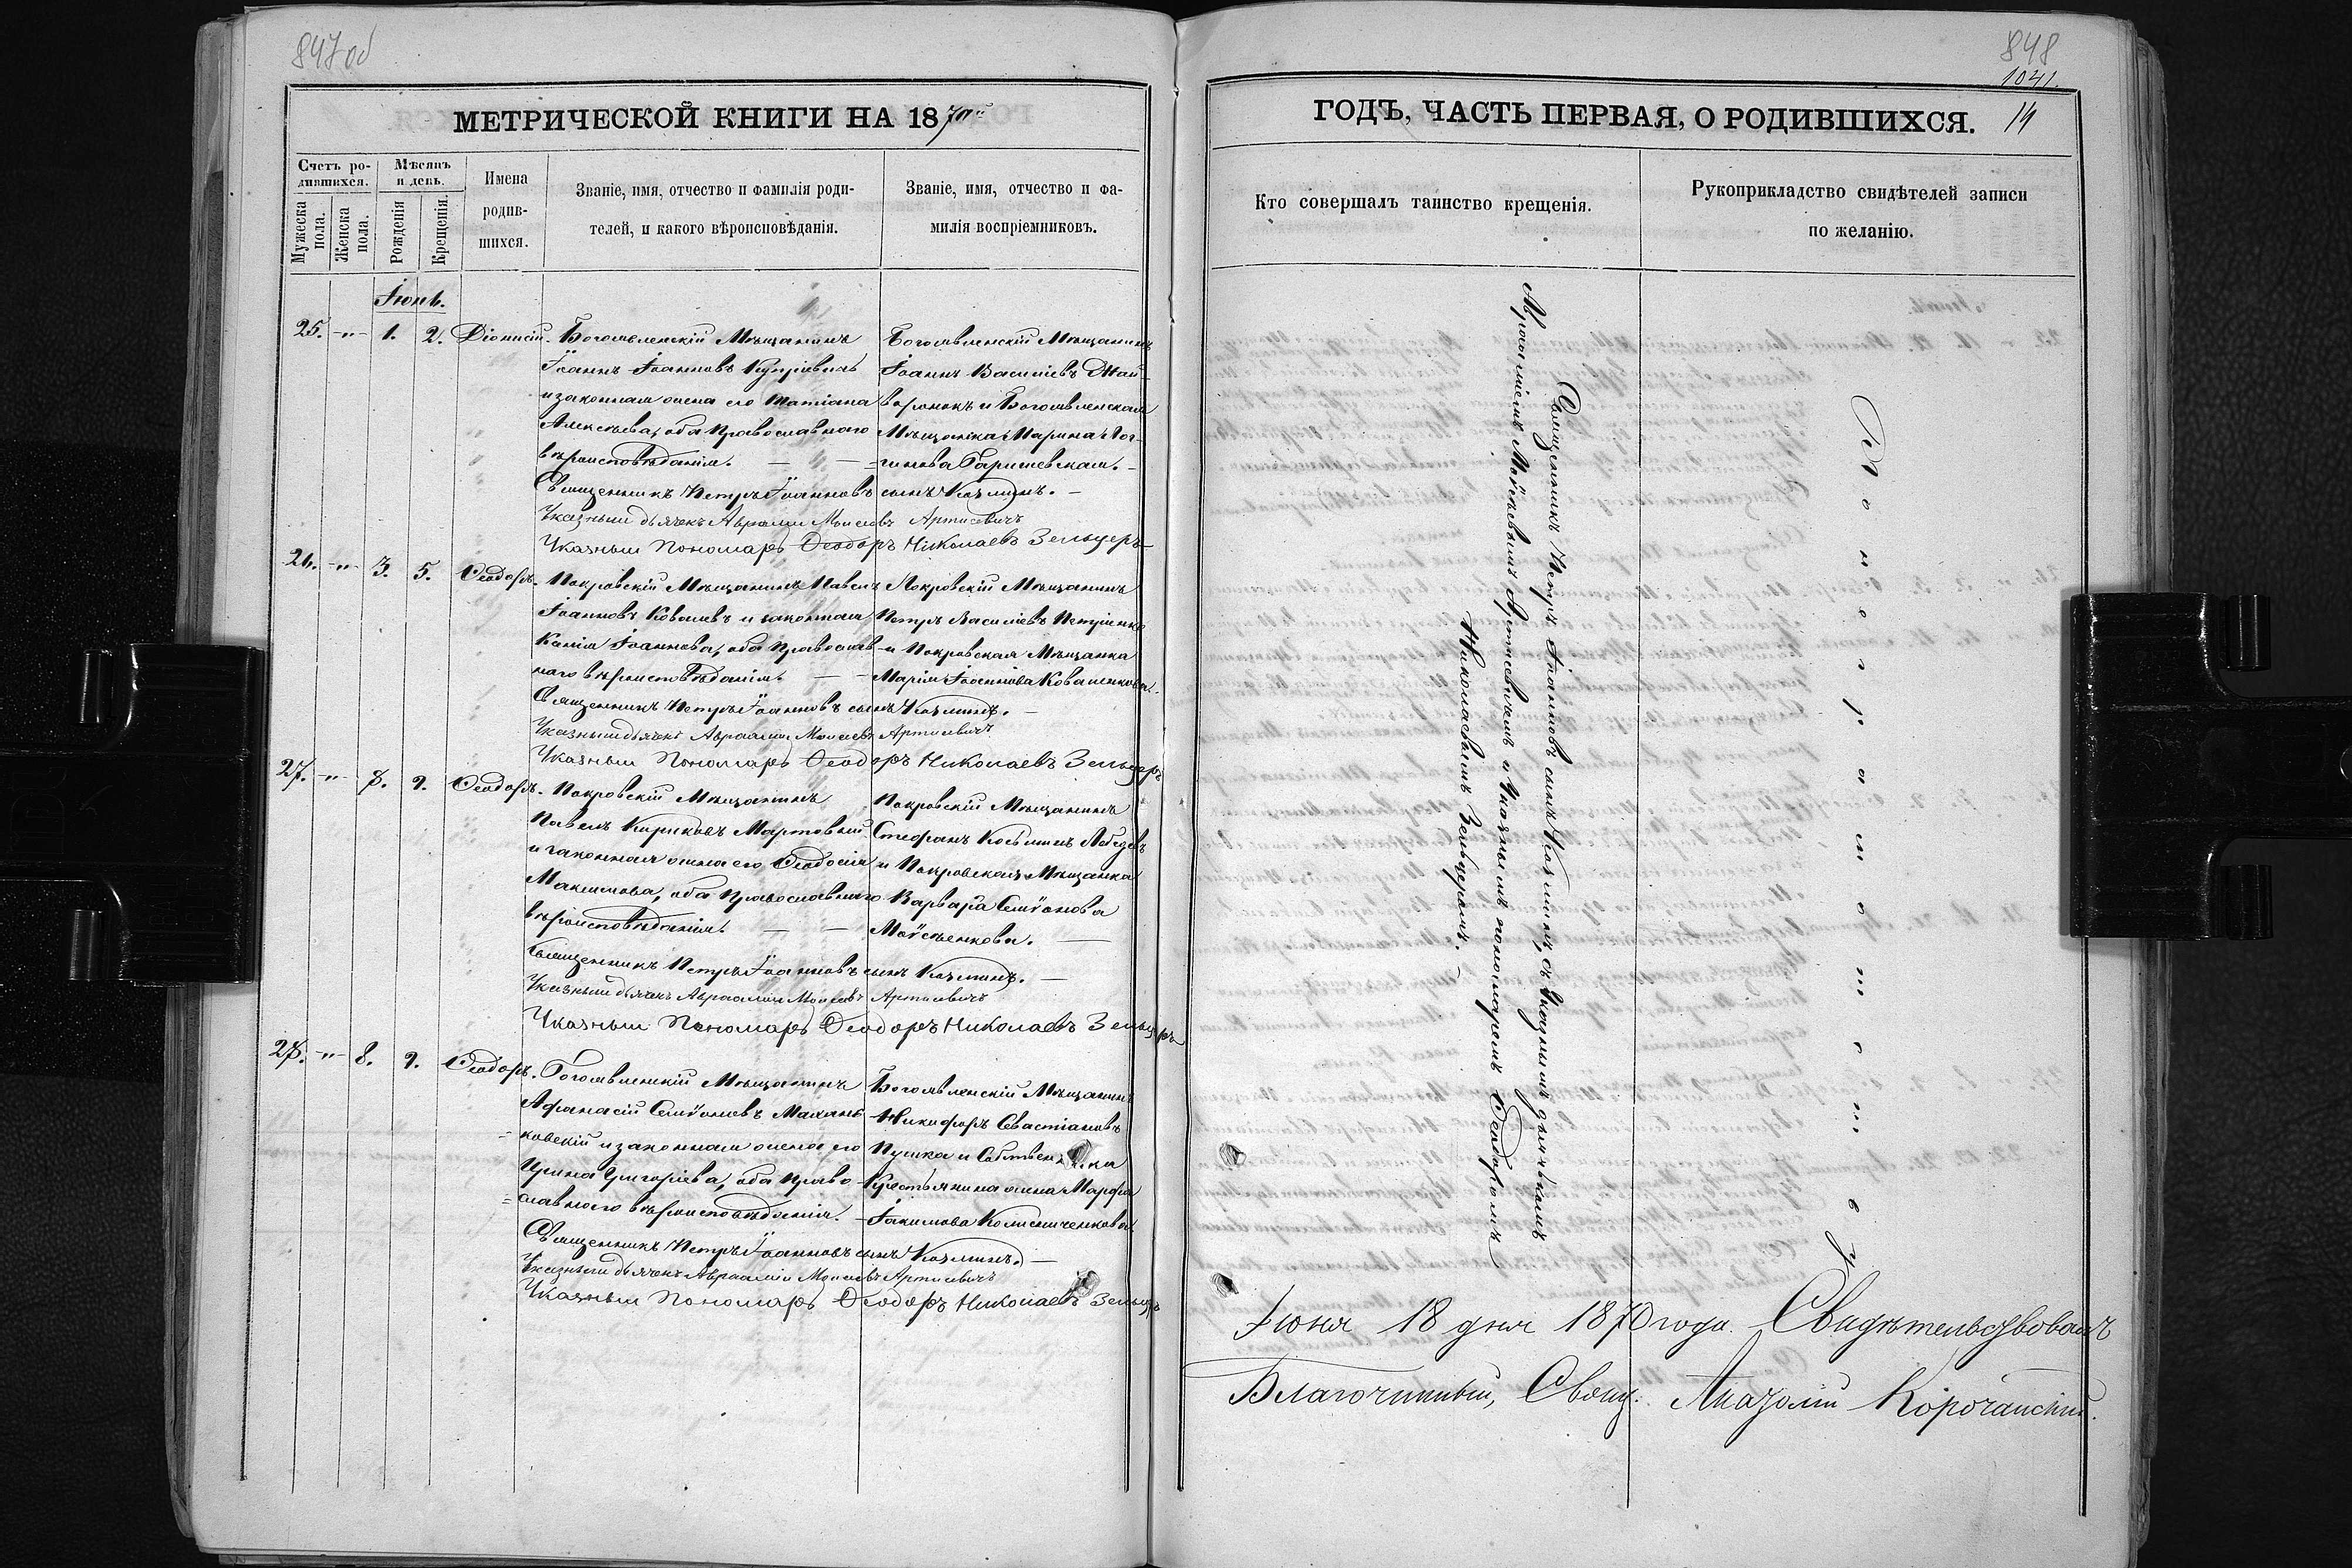 847об
МЕТРИЧЕСКОЙ КНИГИ НА 1870й
Счетъ ро-
дившихся.
Мужеска пола.
Женска пола.
Мѣсяцъ
и день.
Рожденія
Крещенія.
Имена
родив-
шихся.
Званіе, имя, отчество и фамилія роди-
телей, и какого вѣроисповѣданія.
Званіе, имя, отчество и фа-
милія воспріемниковъ.
Іюнь.
25. -"- 1. 2. Діонисій.
Богоявленскій Мѣщанинъ
Іоаннъ Іоанновъ Купріевичъ
и законная жена его Татіана
Алексѣева, оба Православнаго
вѣроисповѣданія. — —
Богоявленскій Мѣщанинъ
Іоаннъ Василіевъ
и Богоявленская
Мѣщанка Марина Лог-
гинова
Священникъ Петръ Іоанновъ сынъ Козминъ. —
Указный дьячекъ Авраамій Моисеевъ Артисевичъ
Указный Пономарь Ѳеодоръ Николаевъ Зельцеръ
26. -"- 3. 5. Ѳеодоръ.
Покровскій Мѣщанинъ Павелъ
Іоанновъ Ковалевъ и законная
Іоаннова, оба Православ-
наго вѣроисповѣданія. —
Покровскій Мѣщанинъ
Петръ Василіевъ Петріенко
и Покровская Мѣщанка
Марія Іоаннова Коваленкова.
Священникъ Петръ Іоанновъ сынъ Козминъ. —
Указный дьячекъ Авраамій Моисеевъ Артисевичъ
Указный Пономарь Ѳеодоръ Николаевъ Зельцеръ
27. -"- 8. 9. Ѳеодоръ.
Покровскій Мѣщанинъ
Павелъ Кириковъ Мартовый
и законная жена его Ѳеодосія
Максимова, оба Православнаго
вѣроисповѣданія. — —
Покровскій Мѣщанинъ
Стефанъ Косьминъ Лебедевъ
и Покровская Мѣщанка
Варвара Семіонова
Моѵсѣенкова. —
Священникъ Петръ Іоанновъ сынъ Козминъ. —
Указный дьячекъ Авраамій Моисеевъ Артисевичъ
Указный Пономарь Ѳеодоръ Николаевъ Зельцеръ
28. -"- 8. 9. Ѳеодоръ.
Богоявленскій Мѣщанинъ
Афанасій Семіоновъ Махань-
ковскій и законная жена его
Ирина Григоріева, оба Право-
славнаго вѣроисповѣданія.
Богоявленскій Мѣщанинъ
Никифоръ Севастіановъ
Пушка и
Крестьянина жена Марфа
Іакимова Колисниченкова
Священникъ Петръ Іоанновъ сынъ Козминъ. —
Указный дьячекъ Авраамій Моисеевъ Артисевичъ
Указный Пономарь Ѳеодоръ Николаевъ Зельцеръ
848
1041.
ГОДЪ, ЧАСТЬ ПЕРВАЯ, О РОДИВШИХСЯ. 14
Кто совершалъ таинство крещенія.
Рукоприкладство свидѣтелей записи
по желанію.
Священникъ Петръ Іоанновъ сынъ Козминъ, съ Указнымъ дьячкомъ
Авраамiемъ Моѵсѣевымъ Артисевичемъ и Указнымъ пономаремъ Ѳеодоромъ
Николаевымъ Зельцеромъ.
По неграмотству
Іюня 18 дня 1870 года. Свидѣтельствовалъ
Благочинный, Свящ: Анатолій Корочанскій.